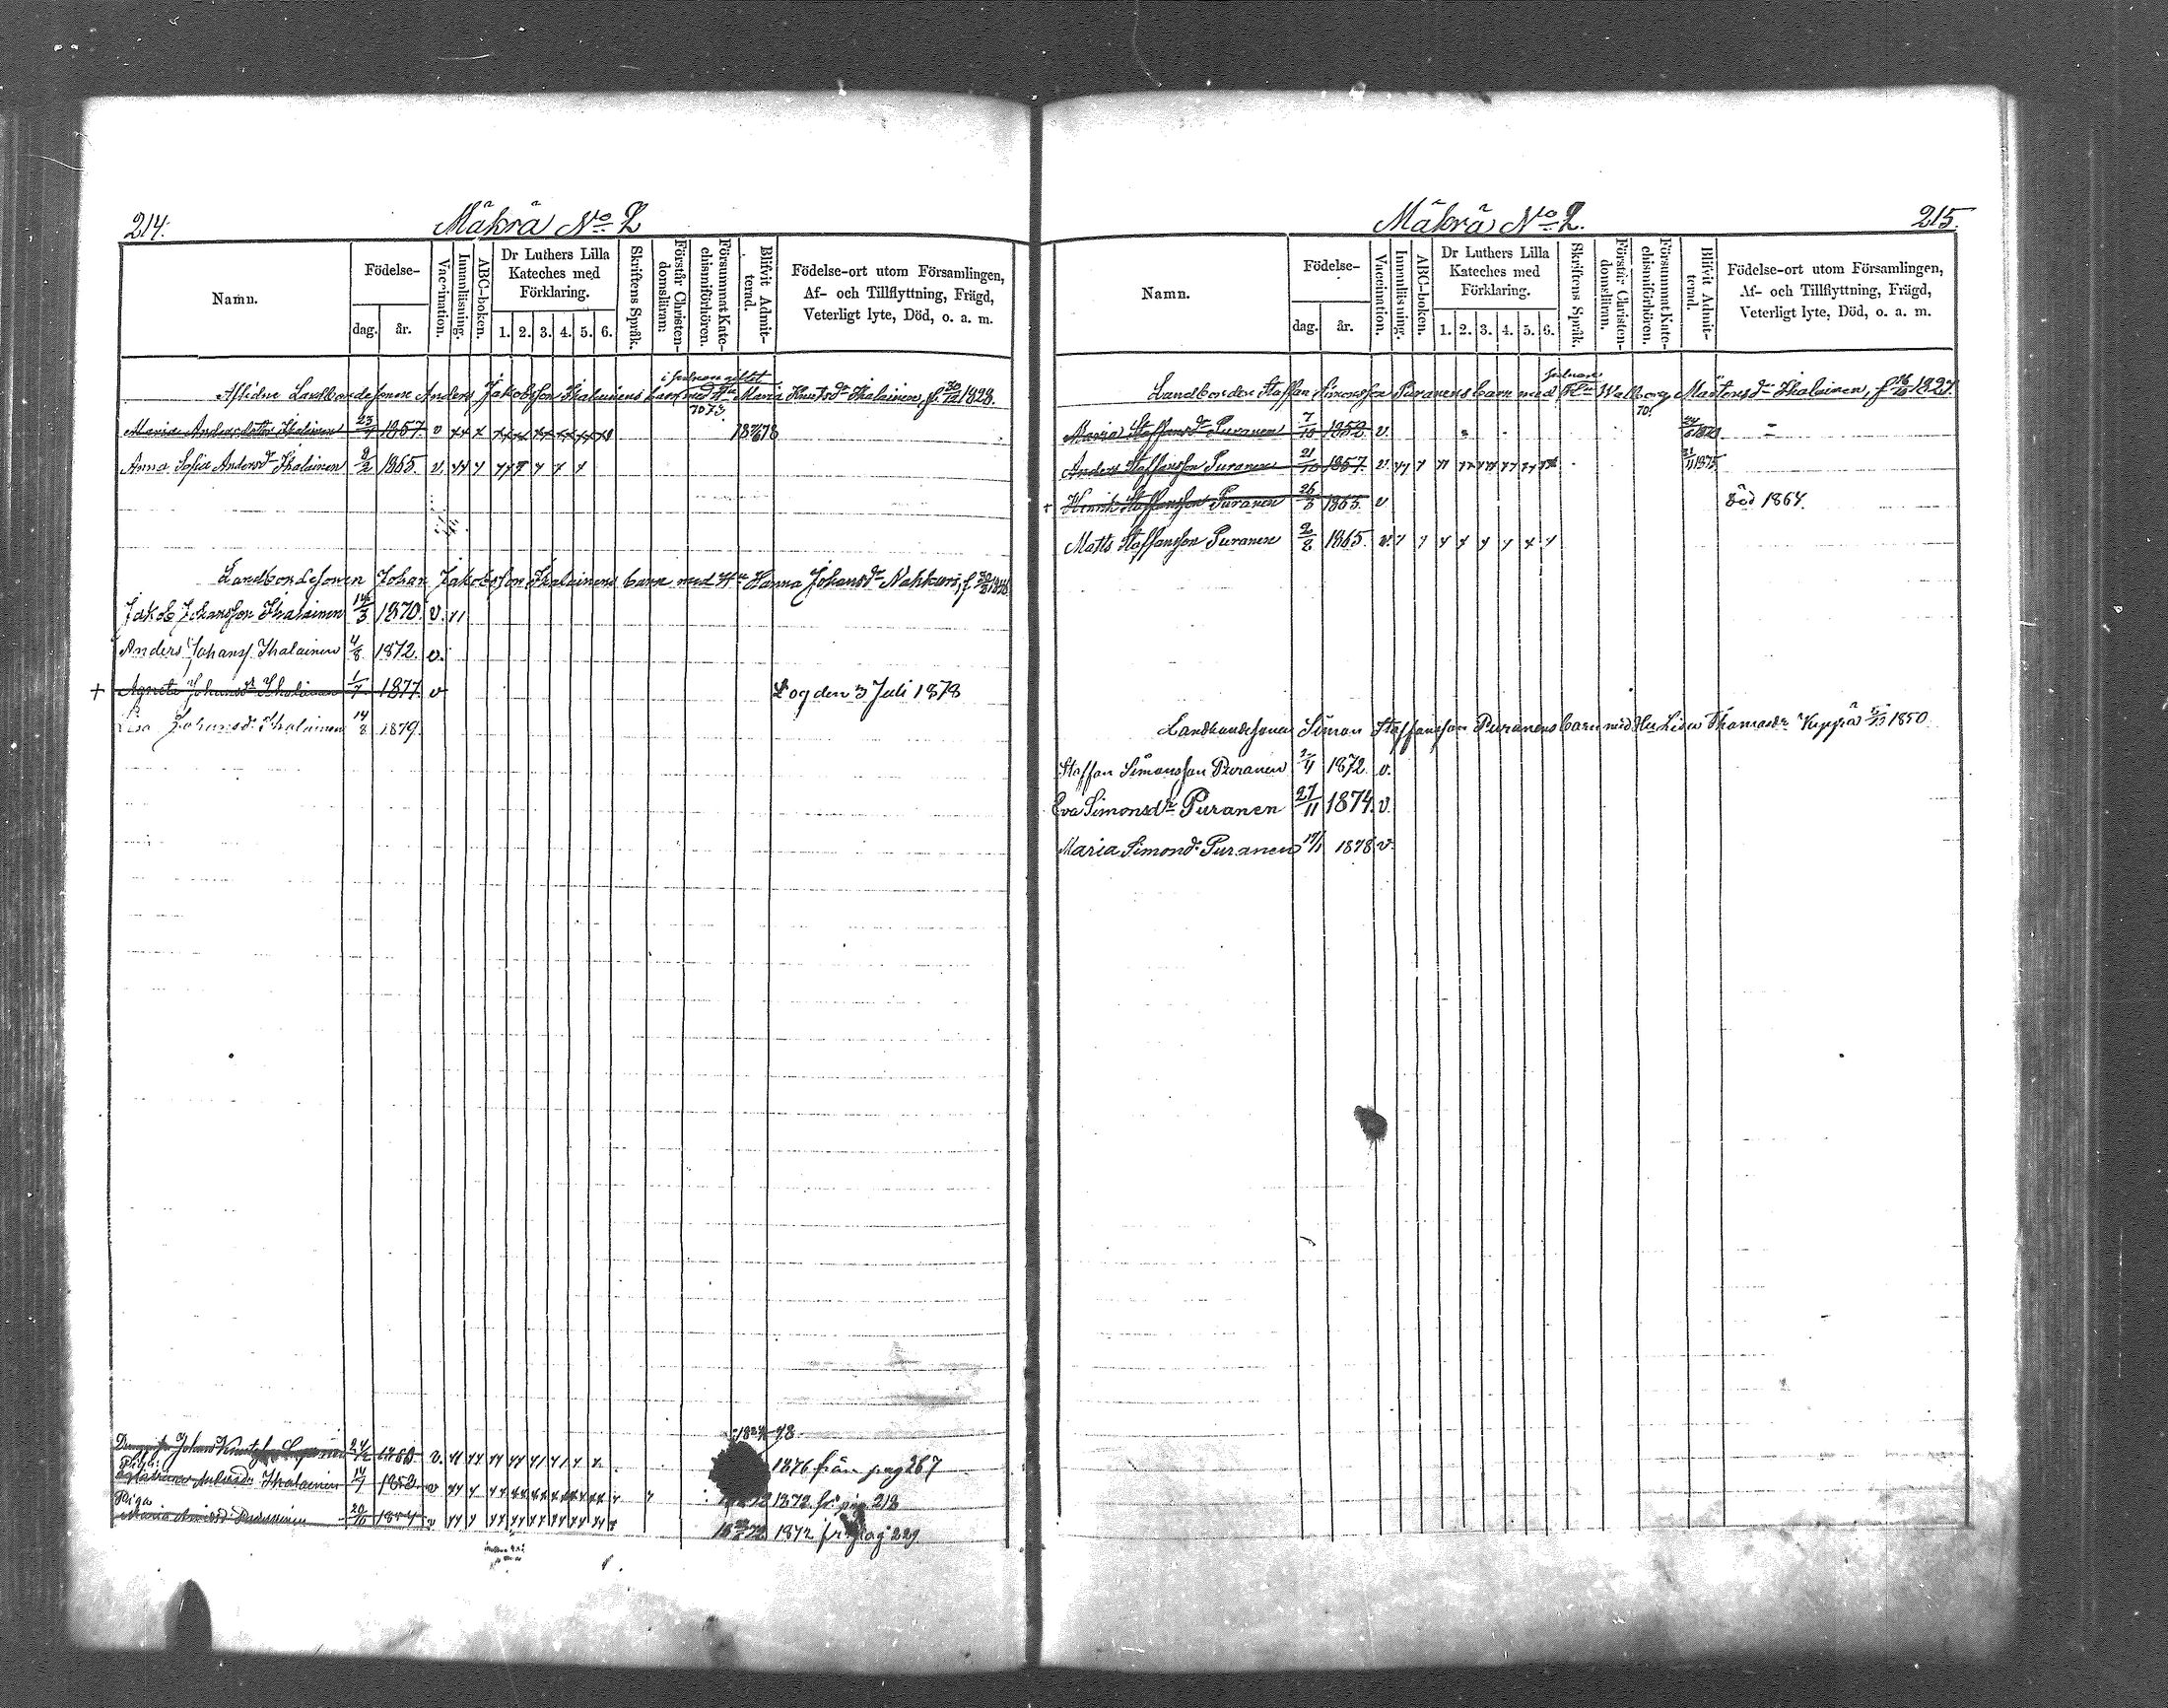 214.
Mäkrä No 2
Namn.
Födelse-
dag.
år.
Vaccination.
Innanläsning.
ABC-boken.
Dr Luthers Lilla Kateches med Förklaring.
1. 2. 3. 4. 5. 6.
Skriftens Språk.
Förstår Christendomsläran.
Försummat Katechismiförhören.
Blifvit Admitterad.
Födelse-ort utom Församlingen, Af- och Tillflyttning, Frägd, Veterligt lyte, Död, o. a. m.
Aflidne Landbondesonen Anders Jakobsson Ihalainens barn med Hu Maria Knutsdr Ihalainen, f. 30/12 1828.
7073
Maria Andersdotter Ihalainen 23/7 1857. v
Anna Sofia Andersdr Ihalainen 9/2 1865. v.
Landbondesonen Johan Jakobsson Ihalainens barn med Hu Hanna Johansdr Nahkuri, f.
Jakob Johansson Ihalainen 14/3 1870. v.
Anders Johanss. Ihalainen 4/8 1872. v.
+ Agneta Johansdr Ihalainen 1/7 1877. v Dog den 3 Juli 1878
Lisa Johansdr Ihalainen 14/8 1879.
Johan Knutsson 24/2 1860. v.
1876 från pag 267
Piga
Andersdr Ihalainen 14/7 1852 v
1872 fr. pag. 218
Piga
Maria
1872 fr. pag 229.
Mäkrä No 2.
215.
Namn.
Födelse-
dag.
år.
Vaccination.
Innanläsning.
ABC-boken.
Dr Luthers Lilla Kateches med Förklaring.
1. 2. 3. 4. 5. 6.
Skriftens Språk.
Förstår Christendomsläran.
Försummat Katechismiförhören.
Blifvit Admitterad.
Födelse-ort utom Församlingen, Af- och Tillflyttning, Frägd, Veterligt lyte, Död, o. a. m.
Landbonden Staffan Simonsson Puranens barn med Hu Walborg Mårtensdr Ihalainen, f. 1827.
70.
Maria Staffansdr Puranen 7/10 1852 v.
Anders Staffansson Puranen 21/10 1857. v. 21/11 1875
+ Henrik Staffansson Puranen 26/3 1863. v död 1864.
Matts Staffansson Puranen 2/2 1865. v.
Landbondesonen Simon Staffansson Puranens barn med Hu Lisa Thomasdr Kyppä 1850.
Staffan Simonsson Puranen 1872 v.
Eva Simonsdr Puranen 27/11 1874. v.
Maria Simonsdr Puranen 17/1 1878 v.